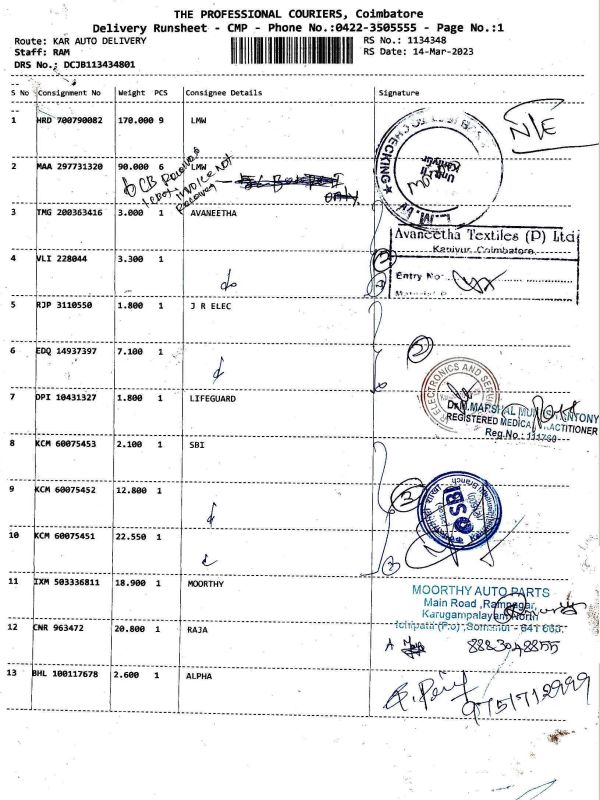 THE PROFESSIONAL COURIERS, Coimbatore
Delivery Runsheet - CMP - Phone No.:0422-3505555 - Page No.:1
Route: KAR AUTO DELIVERY
RS No.: 1134348
Staff: RAM
RS Date: 14-Mar-2023
DRS No.: DCJB113434801
S No Consignment No Weight PCS Consignee Details Signature
1 HRD 700790082 170.000 9 LMW
N/E
2 MAA 297731320 90.000 6 LMW
6 CB Received
invoice not
Received
only
CHECKING
Unit II
Kaniyur
L.M.W
3 TMG 200363416 3.000 1 AVANEETHA
Avaneetha Textiles (P) Ltd
Kaniyur, Coimbatore
4 VLI 228044 3.300 1
do
2
Entry No
5 RJP 3110550 1.800 1 J R ELEC
6 EDQ 14937397 7.100 1
2
ELECTRONICS AND
7 DPI 10431327 1.800 1 LIFEGUARD
REGISTERED MEDICAL PRACTITIONER
Reg.No: 111760
8 KCM 60075453 2.100 1 SBI
9 KCM 60075452 12.800 1
3
SBI
10 KCM 60075451 22.550 1
3
11 IXM 503336811 18.900 1 MOORTHY
MOORTHY AUTO PARTS
Main Road, Ramnagar,
Karugampalayam North
12 CNR 963472 20.800 1 RAJA
8883048855
13 BHL 100117678 2.600 1 ALPHA
9751712999